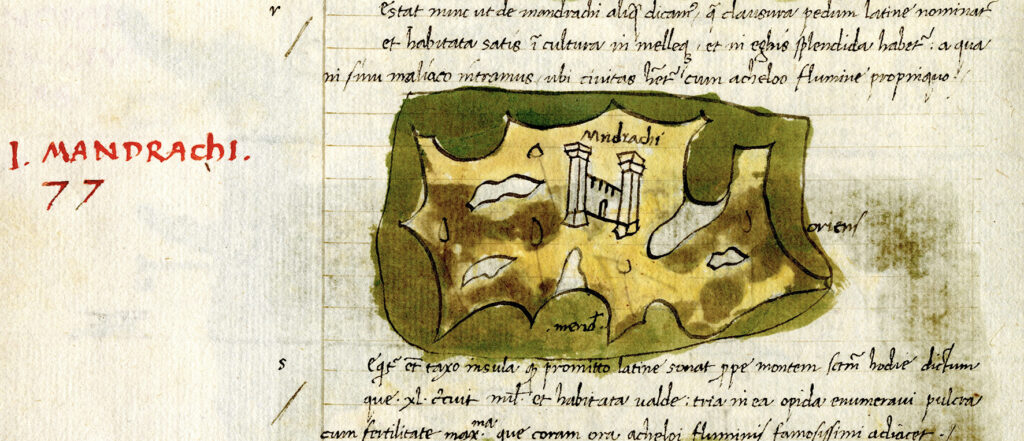 r
Restat nunc ut de mandrachi aliq̄ dicam⁹, q̄ clausura pedum latine nominat᷑
et habitata satis ī cultura in melleq̨ et in eghis splendida habet᷑: a qua
in sinu maliaco intramus, ubi civitas h̄et᷑ cum acheloo flumine propinquo./
I. MANDRAChI.
77
Mndrachi
oriens
merid̄.
s
et taxo insula q̨ promitto latine sonat prpe montem sctm̄ hodie dictum
que .xl. c̄cuit mil̄. et habitata valde: tria in ea opida enumeravi pulcra
cum fertilitate max.ᵐᵃ que coram ora acheloi fluminis famosissimi adiacet./